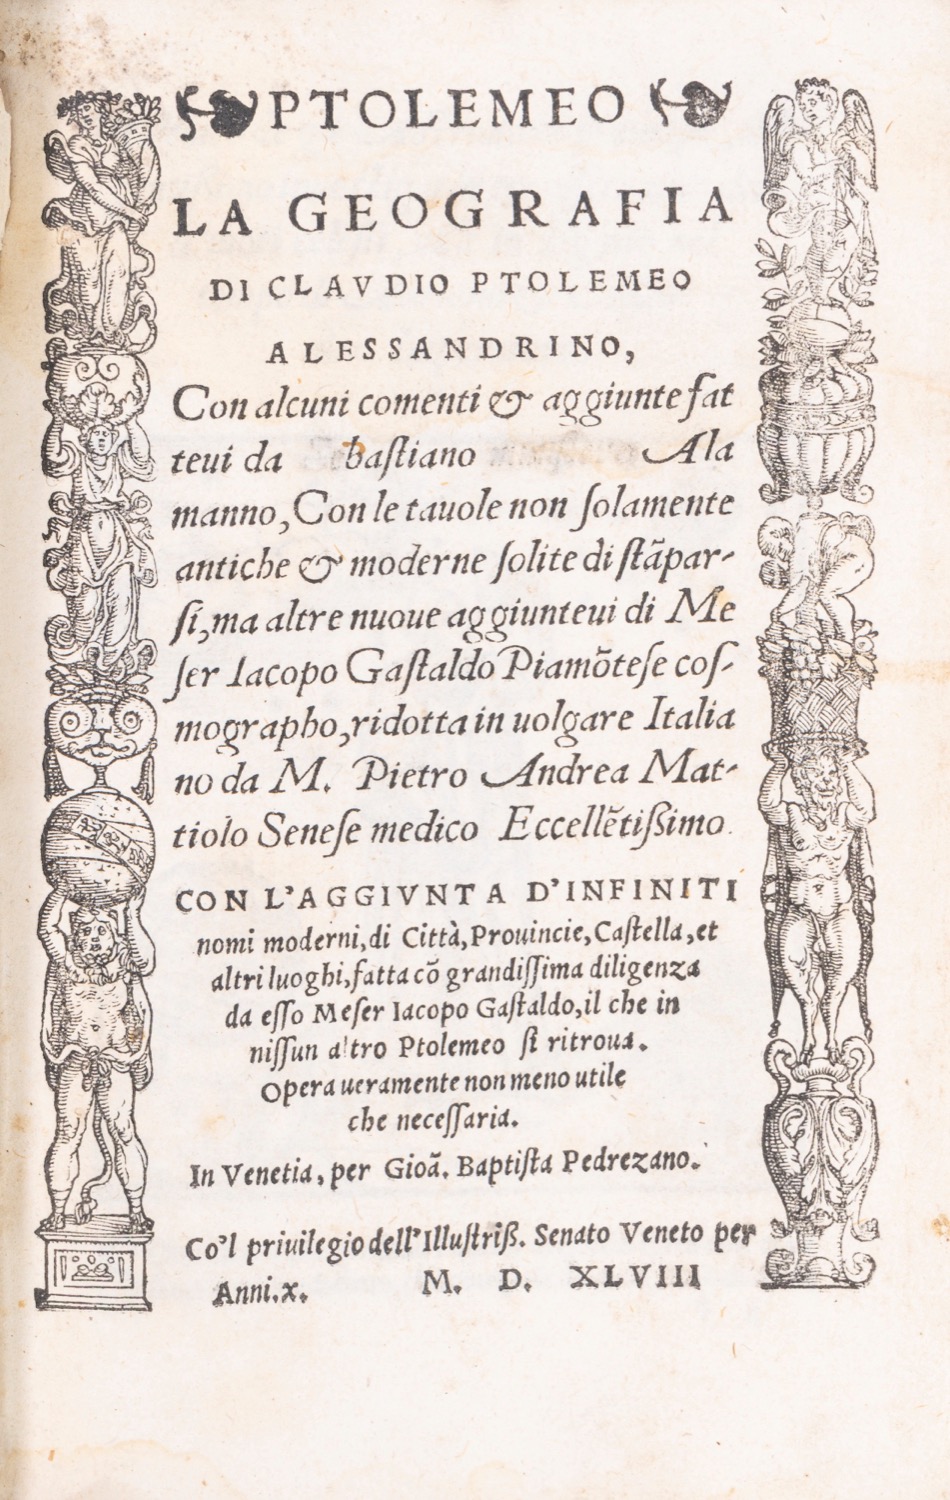 PTOLEMEO
LA GEOGRAFIA
DI CLAVDIO PTOLEMEO
ALESSANDRINO,
Con alcuni comenti & aggiunte fat
teui da bastiano Ala
manno, Con le tauole non solamente
antiche & moderne solite di stãpar-
si, ma altre nuoue aggiunteui di Me
ser Iacopo Gastaldo Piamõtese cos-
mographo, ridotta in uolgare Italia
no da M. Pietro Andrea Mat-
tiolo Senese medico Eccellẽtißimo.
CON L'AGGIVNTA D'INFINITI
nomi moderni, di Città, Prouincie, Castella, et
altri luoghi, fatta cõ grandissima diligenza
da esso Meser Iacopo Gastaldo, il che in
nissun altro Ptolemeo si ritroua.
Opera ueramente non meno utile
che necessaria.
In Venetia, per Gioã. Baptista Pedrezano.
Co'l priuilegio dell'Illustriß. Senato Veneto per
Anni.x. M. D. XLVIII